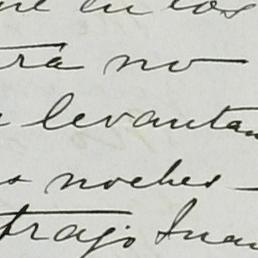 en los
tra no
levantan
noches
trajo Juan